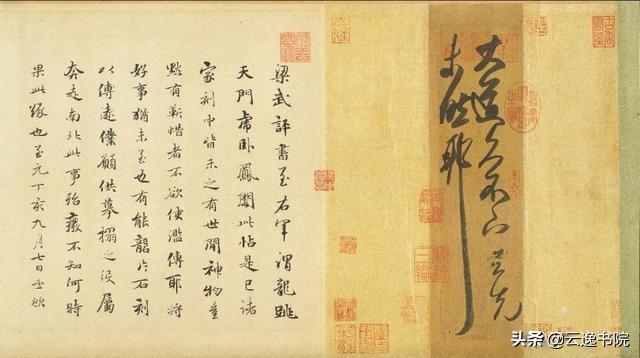 大道久不下與先
未然耶
梁武評書至右軍謂龍跳
天門虎臥鳳閣此帖是已諸
家刻中皆未之有世間神物豈
默有靳惜者不欲使濫傳耶將
好事猶未至也有能礱片石刻
以傳遠僕願供摹搨之役屬
奔走南北此事殆廢不知何時
果此緣也至元丁亥九月七日孟頫
头条 @云逸书院